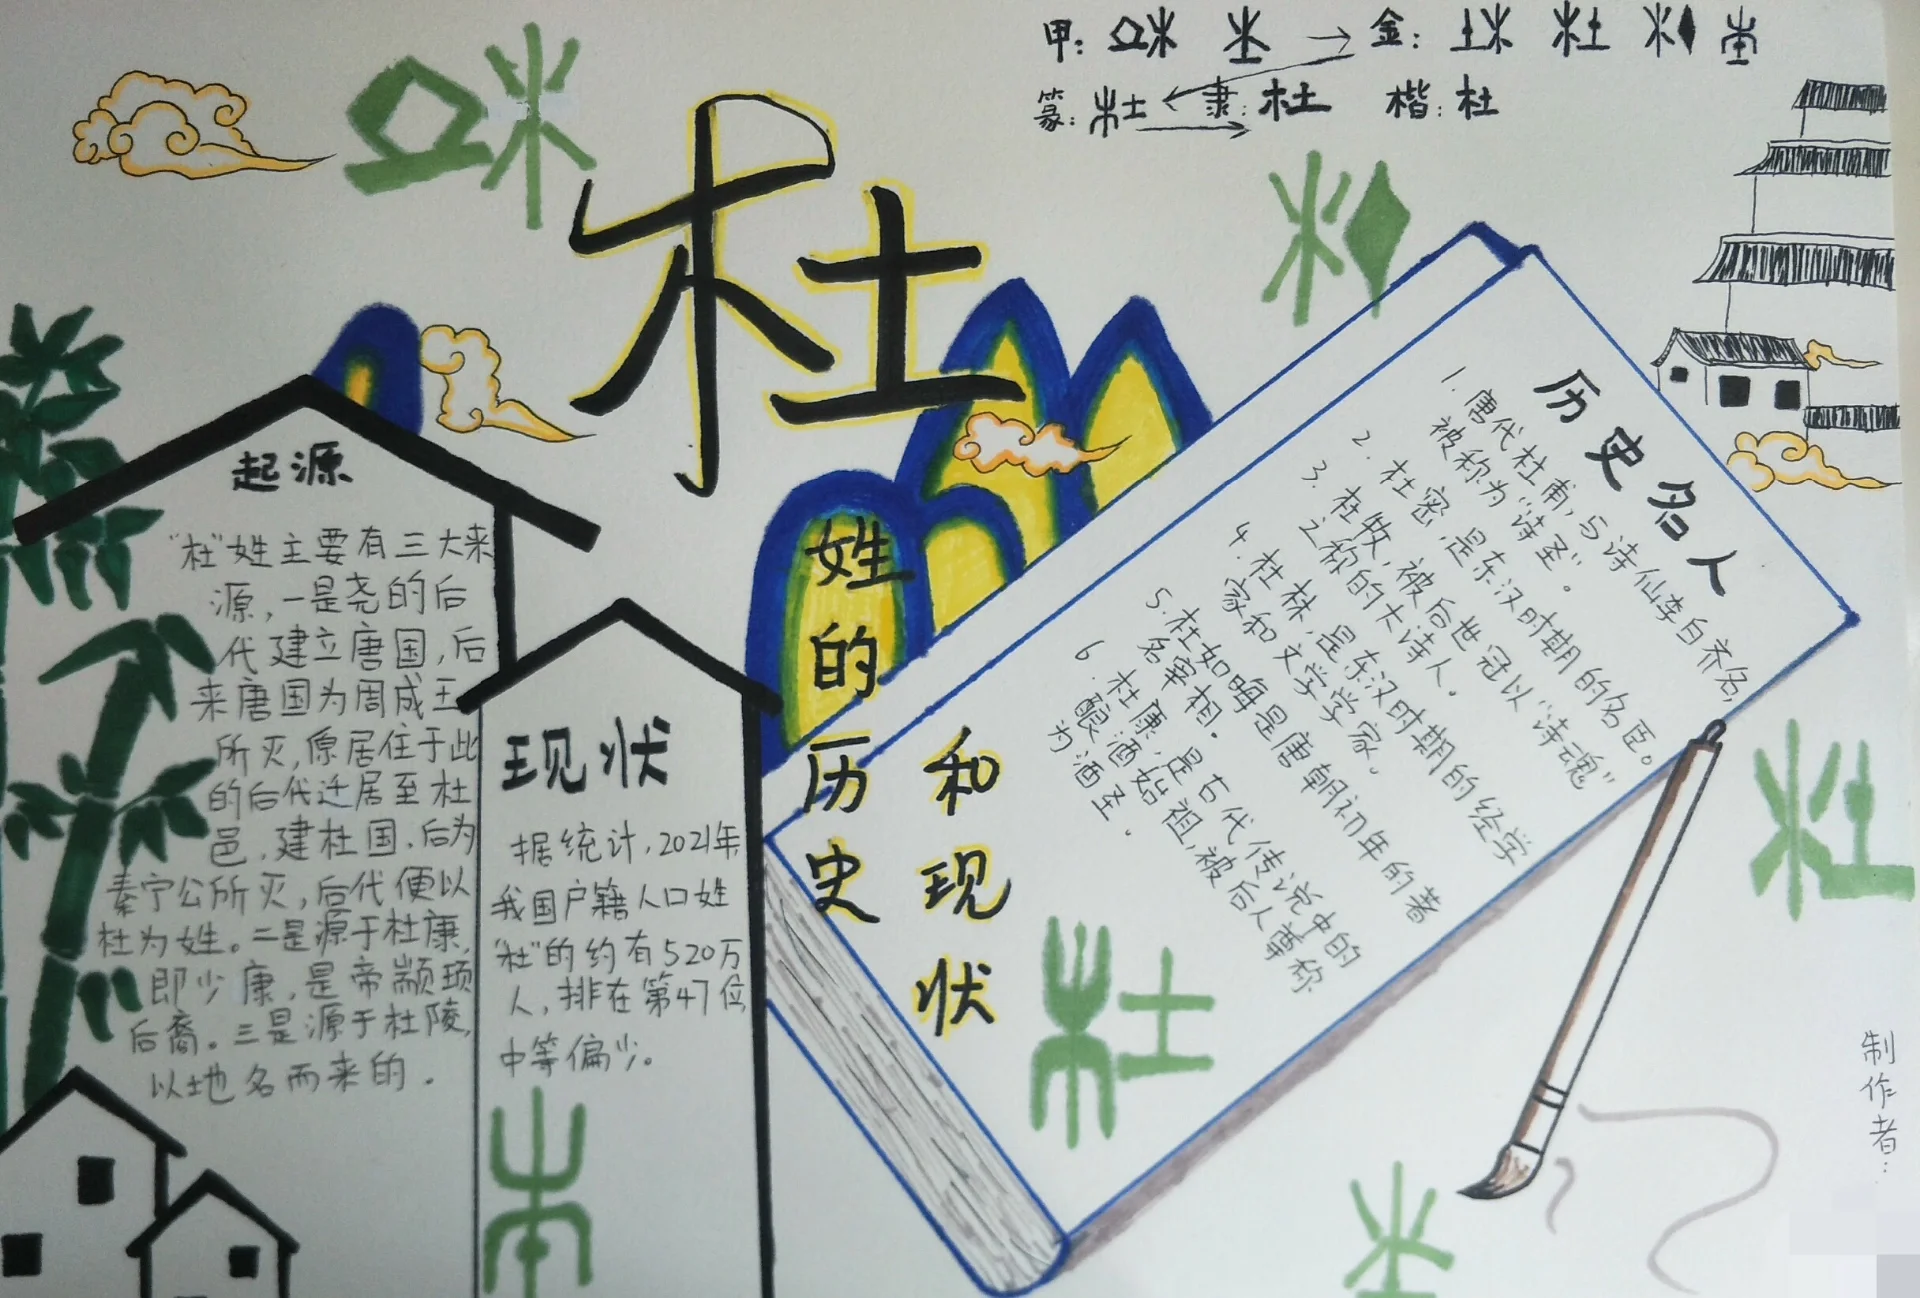 甲: 金:
篆: 杜 隶: 杜 楷: 杜
杜
姓的历史
和现状
起源
“杜”姓主要有三大来
源,一是尧的后
代建立唐国,后
来唐国为周成王
所灭,原居住于此
的后代迁居至杜
邑,建杜国,后为
秦宁公所灭,后代便以
杜为姓。二是源于杜康,
即少康,是帝颛顼
后裔。三是源于杜陵,
以地名而来的.
现状
据统计,2021年
我国户籍人口姓
“杜”的约有520万
人,排在第47位
中等偏少。
历史名人
1. 唐代杜甫,与诗仙李白齐名,
被称为“诗圣”。
2. 杜密,是东汉时期的名臣。
3. 杜牧,被后世冠以“诗魂”
之称的大诗人.
4. 杜林,是东汉时期的经学
家和文学学家.
5. 杜如晦是唐朝初年的著
名宰相.
6. 杜康,是古代传说中的
酿酒始祖,被后人尊称
为酒圣.
制作者: